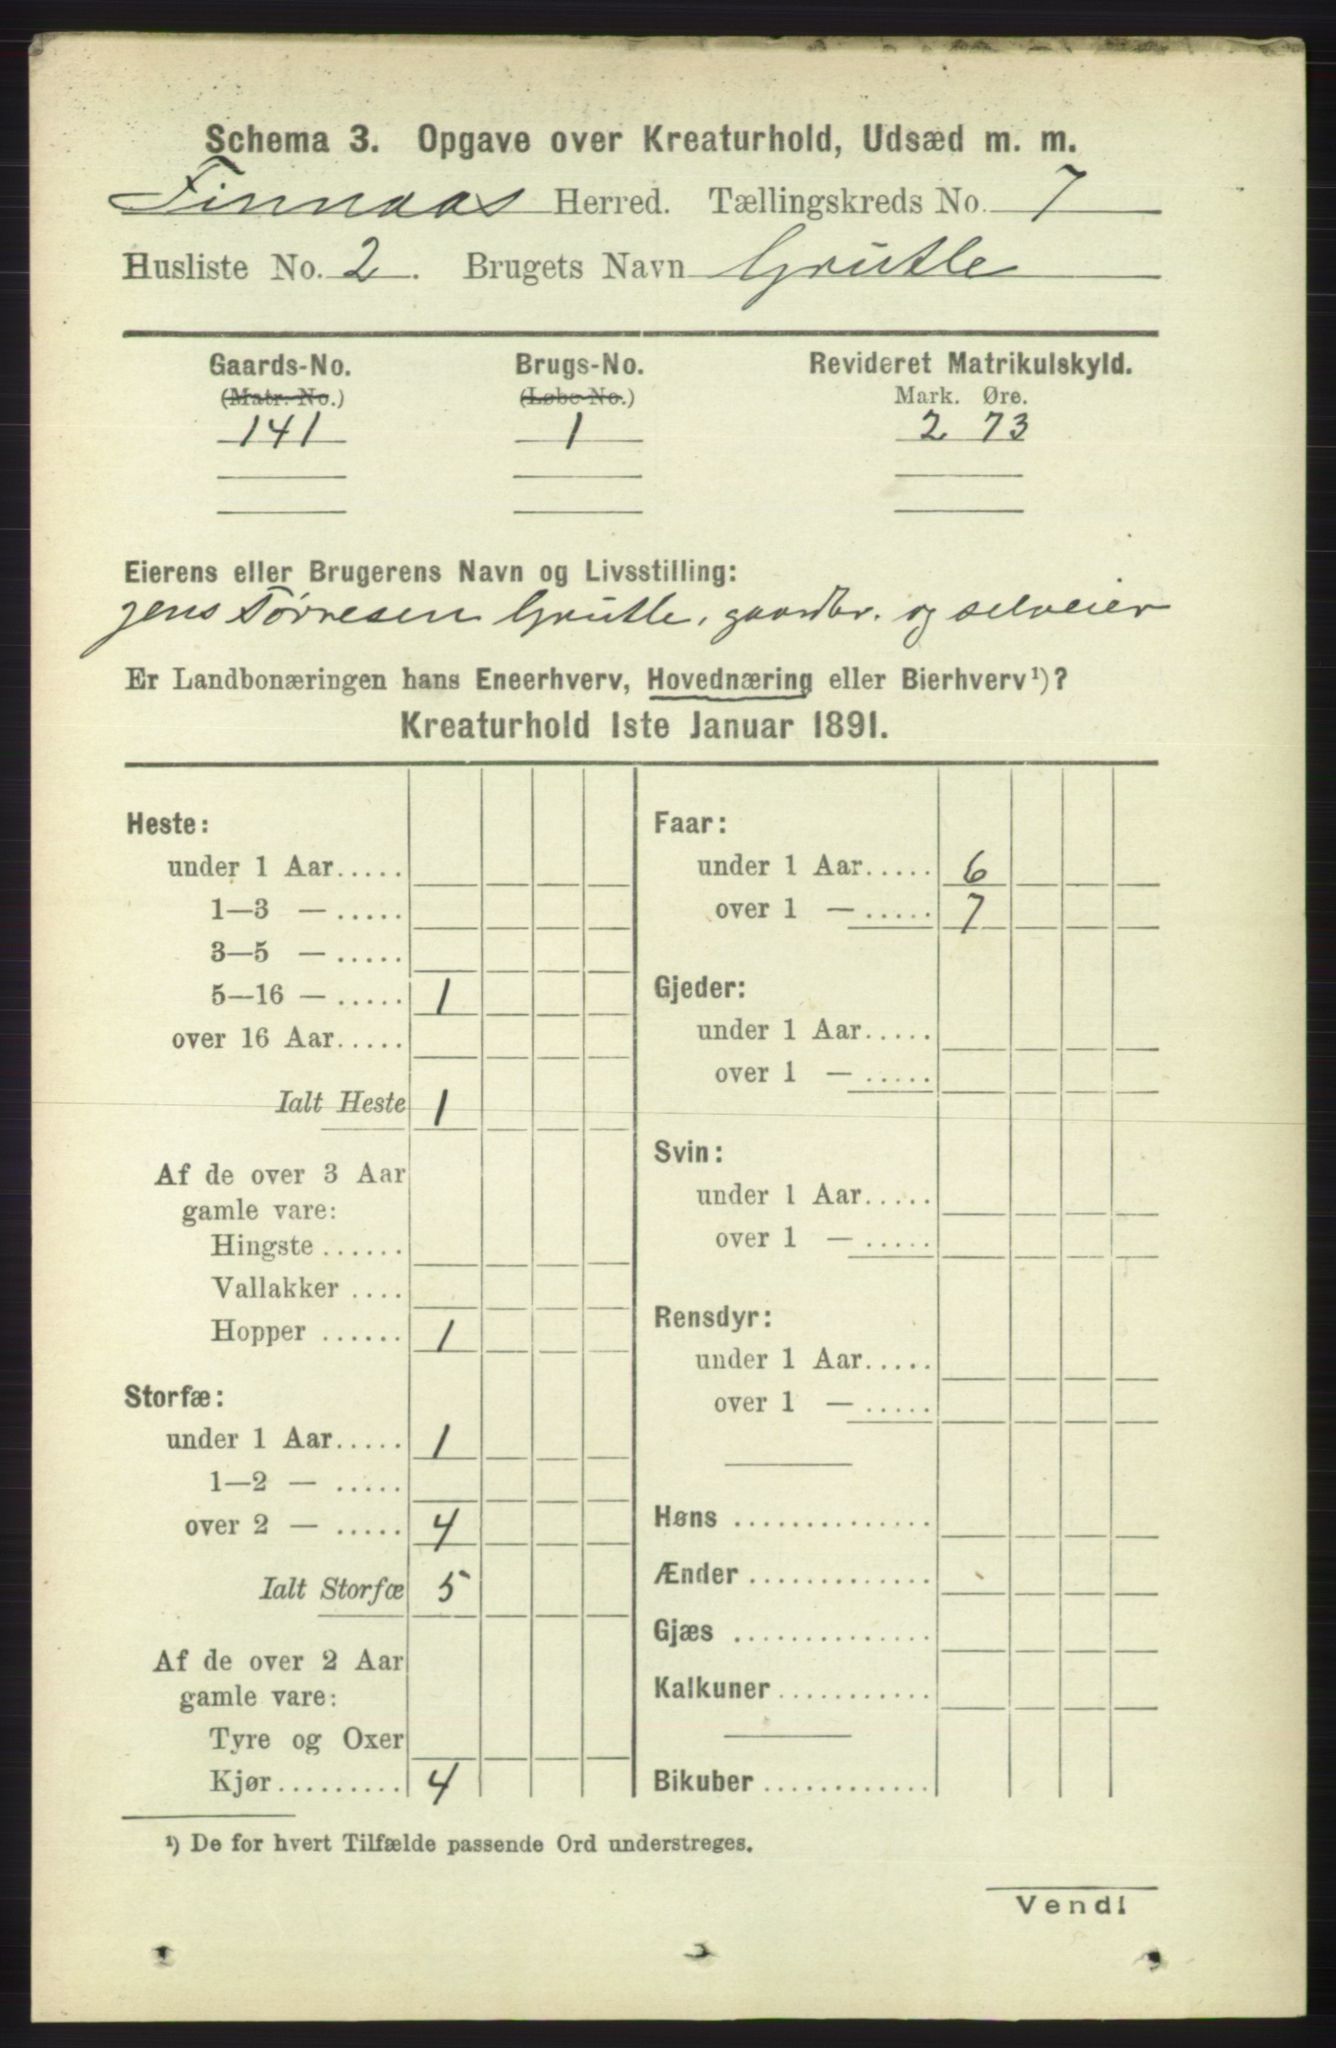 Schema 3. Opgave over Kreaturhold, Udsæd m. m.
Finnaas Herred. Tællingskreds No. 7
Husliste No. 2. Brugets Navn Grutle
Gaards-No. Brugs-No. Revideret Matrikulskyld.
(Matr. No.) (Løbe No.) Mark. Øre.
141 1 2 73
Eierens eller Brugerens Navn og Livsstilling:
Jens Tørresen Grutle, gaardbr. og selveier
Er Landbonæringen hans Eneerhverv, Hovednæring eller Bierhverv¹)?
Kreaturhold 1ste Januar 1891.
Heste:
under 1 Aar.....
1—3 — .....
3—5 — .....
5—16 — ..... 1
over 16 Aar.....
Ialt Heste 1
Af de over 3 Aar
gamle vare:
Hingste ......
Vallakker ....
Hopper ...... 1
Storfæ:
under 1 Aar..... 1
1—2 — .....
over 2 — ..... 4
Ialt Storfæ 5
Af de over 2 Aar
gamle vare:
Tyre og Oxer
Kjør......... 4
Faar:
under 1 Aar..... 6
over 1 — ..... 7
Gjeder:
under 1 Aar.....
over 1 — .....
Svin:
under 1 Aar.....
over 1 — .....
Rensdyr:
under 1 Aar.....
over 1 — .....
Høns ..............
Ænder .............
Gjæs ..............
Kalkuner...........
Bikuber ............
¹) De for hvert Tilfælde passende Ord understreges.
Vend!